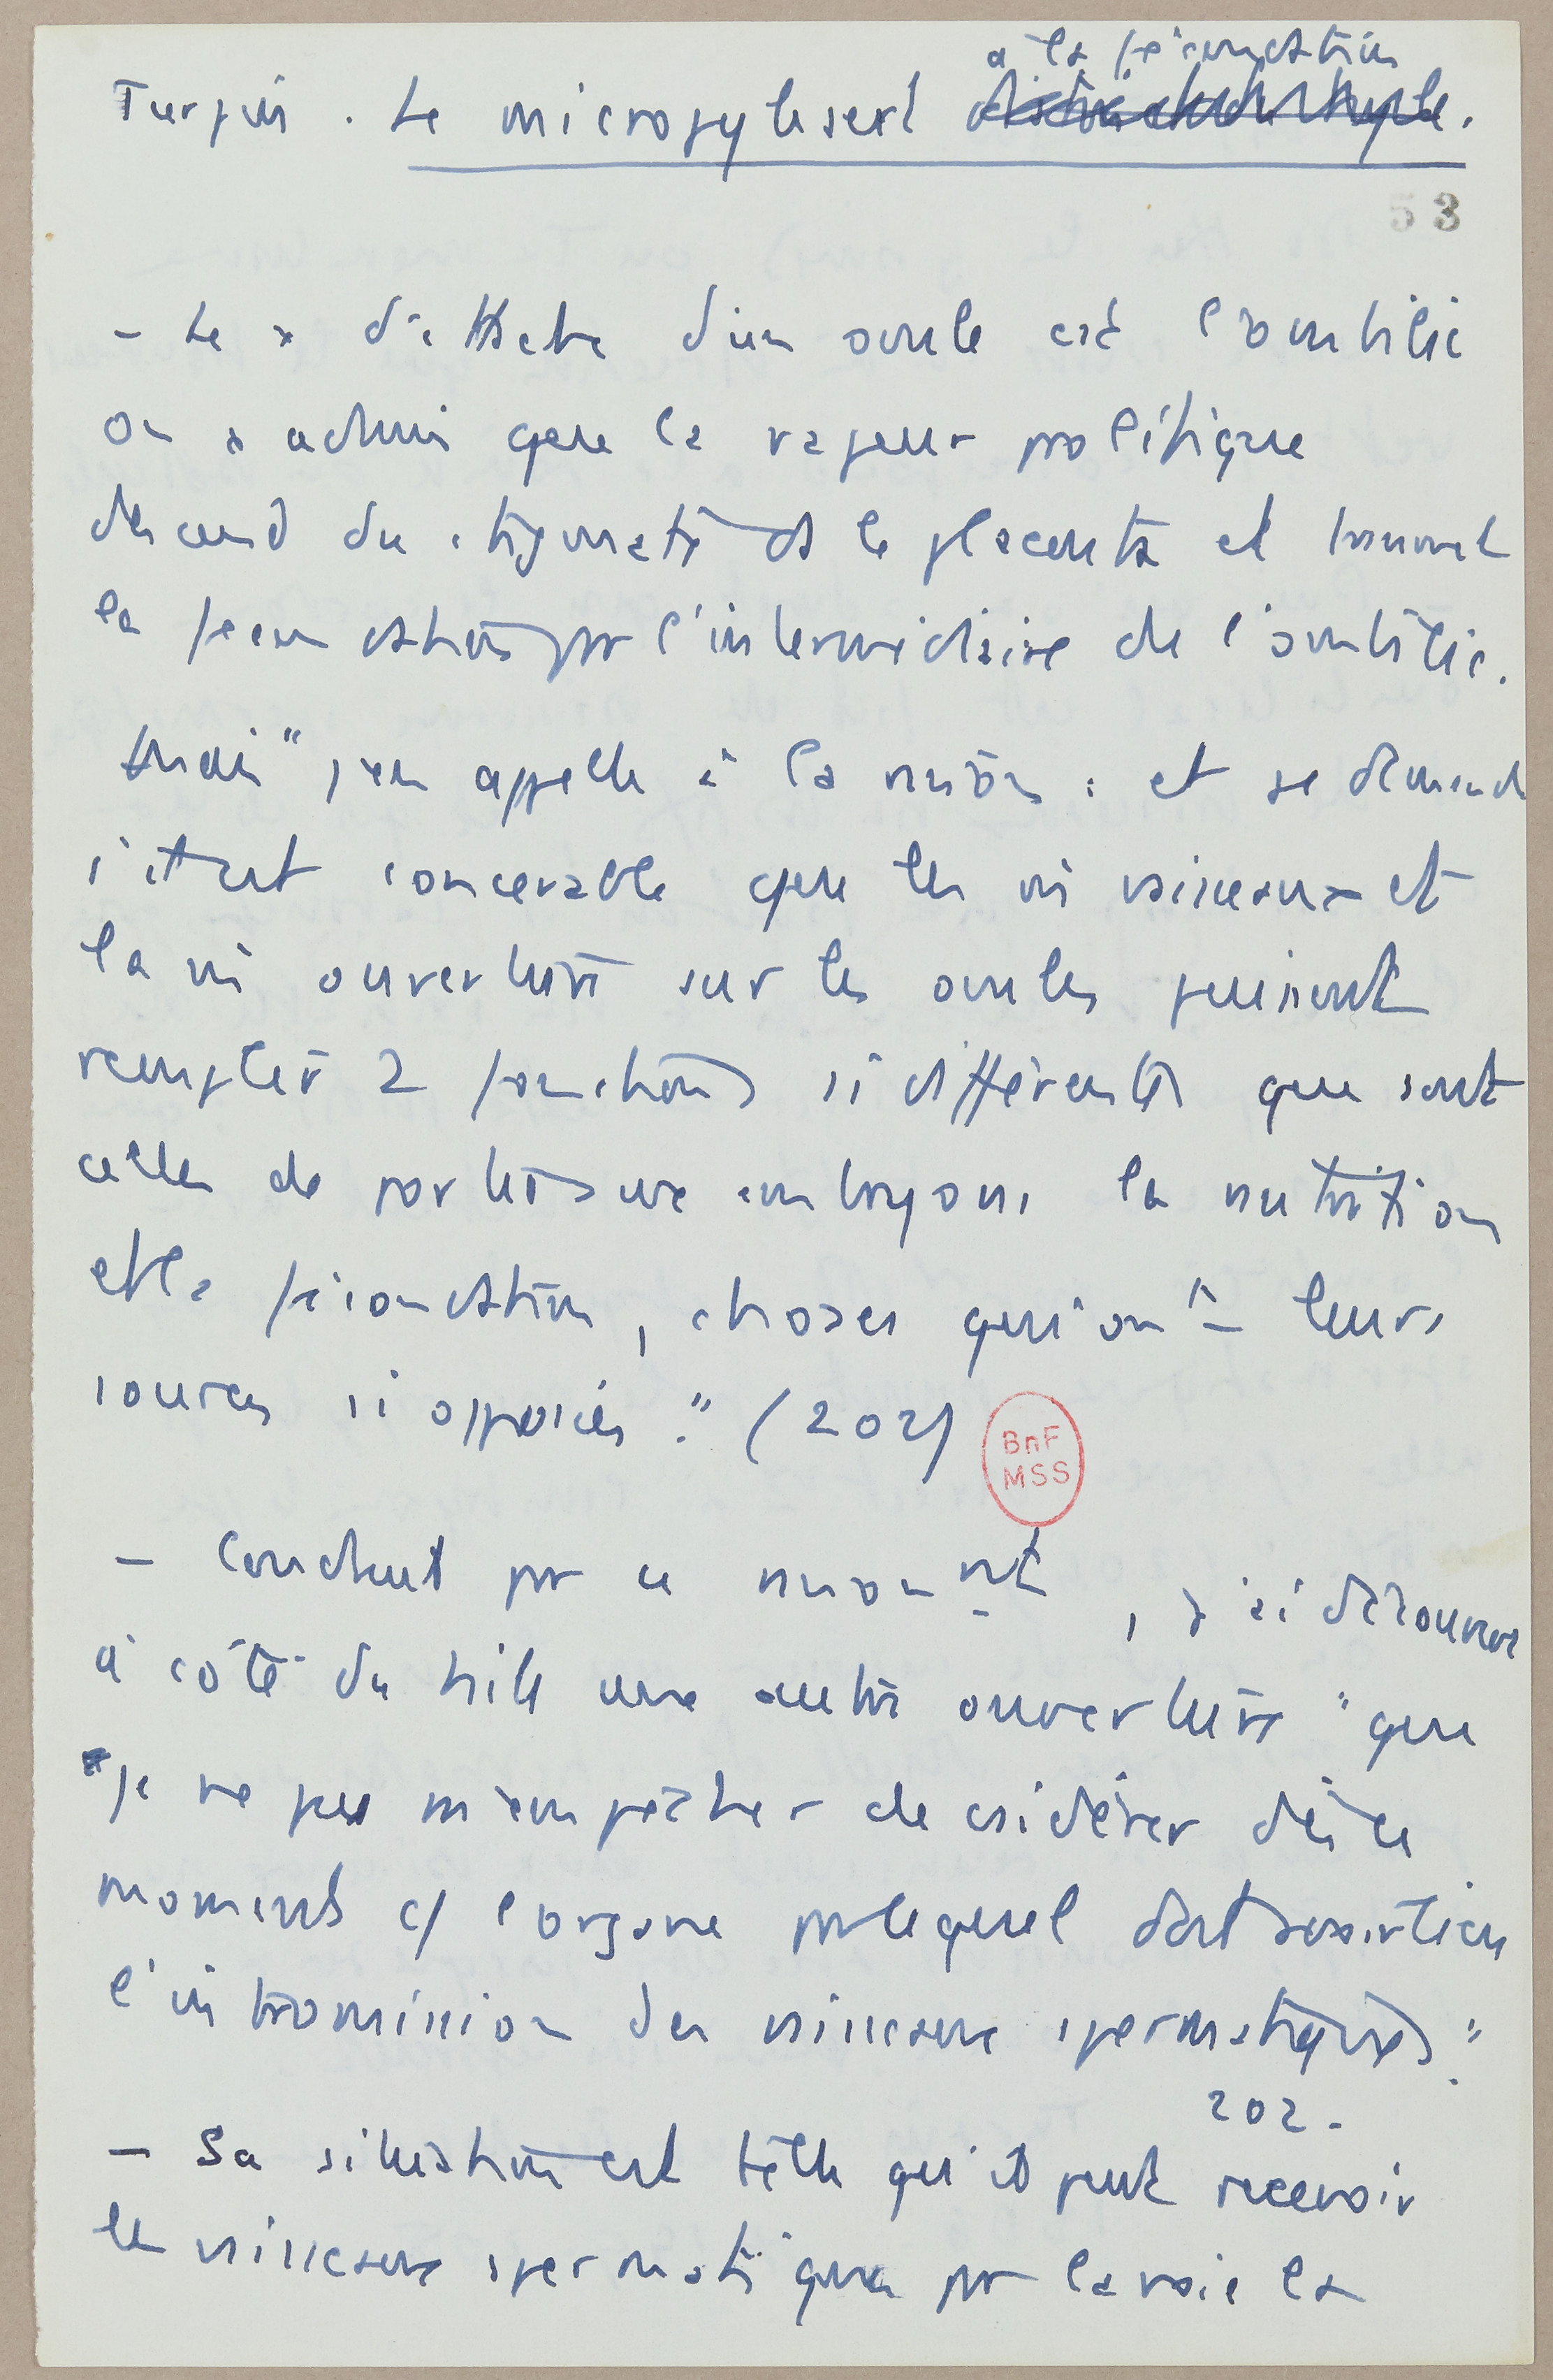 à la fécondation
Turpin. Le micropyle sert
53
- Le d'attache d'un ovule est l'ombilic
On a admis que la vapeur prolifique
descend du stigmate ds le placenta et transmet
la fecondation pr l'intermédiaire de l'ombilic.
Mais "j'en appelle à la raison : et je demande
s'il est concevable que les m vaisseaux et
la m ouverture sur les ovules puissent
remplir 2 fonctions si différentes que sont
celles de porter aux embryons la nutrition
et la fécondation, choses qui ont leurs
sources si opposées." (202)
- Conduit pr ce raisonnt, j'ai découvert
à côté du hile une autre ouverture "que
je ne pus m'empêcher de csidérer dès ce
moment c/ l'organe pr lequel doit avoir lieu
l'intromission des vaisseaux spermatiques."
202.
- Sa situation est telle qu'il peut recevoir
les vaisseaux spermatiques pr la voie la
BnF
MSS